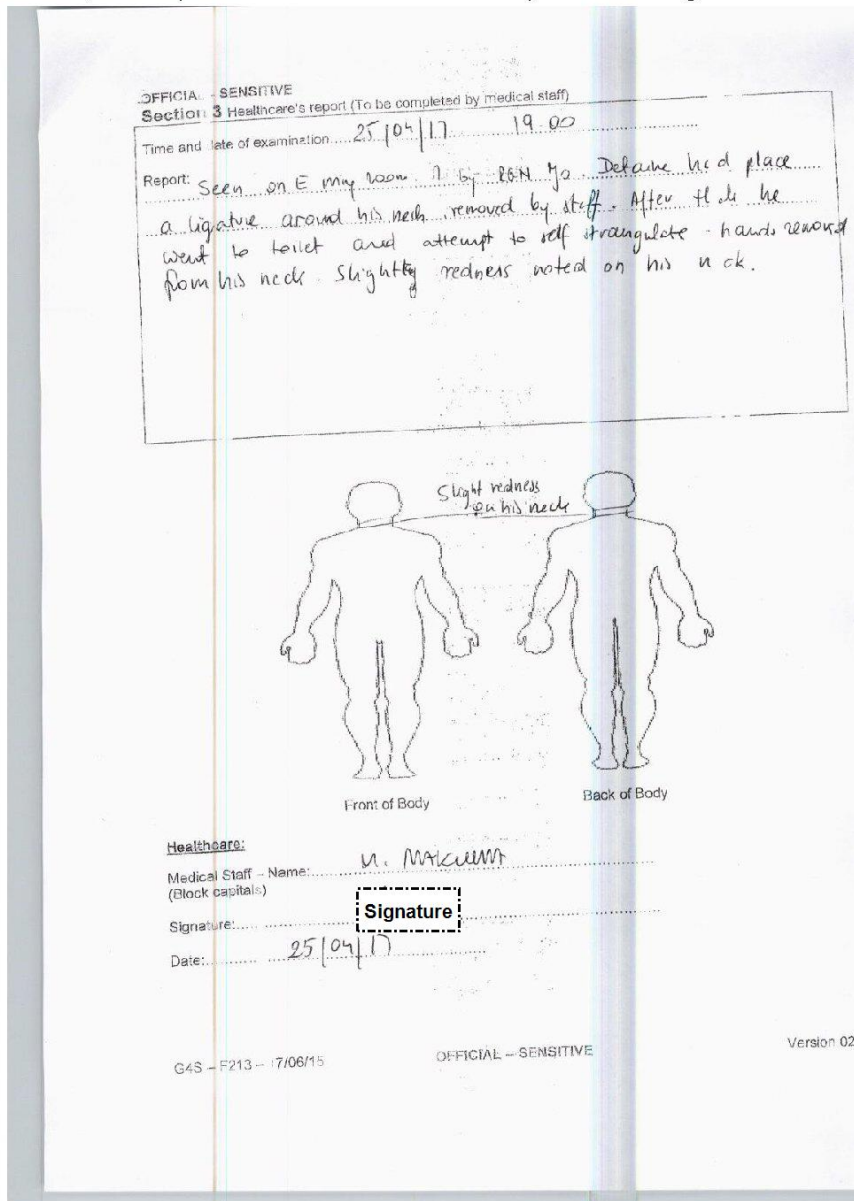 OFFICIAL - SENSITIVE
Section 3 Healthcare's report (To be completed by medical staff)
Time and date of examination 25/04/17 19.00
Report: Seen on E wing room 7 by RGN Jo. Detaine had place
a ligature around his neck removed by staff. After he
went to toilet and attempt to self strangulate - hands removed
from his neck. Slightly redness noted on his
Slight redness
on his neck
Front of Body
Back of Body
Healthcare:
Medical Staff - Name:
(Block capitals)
Signature:
Signature
Date: 25/04/17
G4S - F213 - 17/06/15
OFFICIAL - SENSITIVE
Version 02